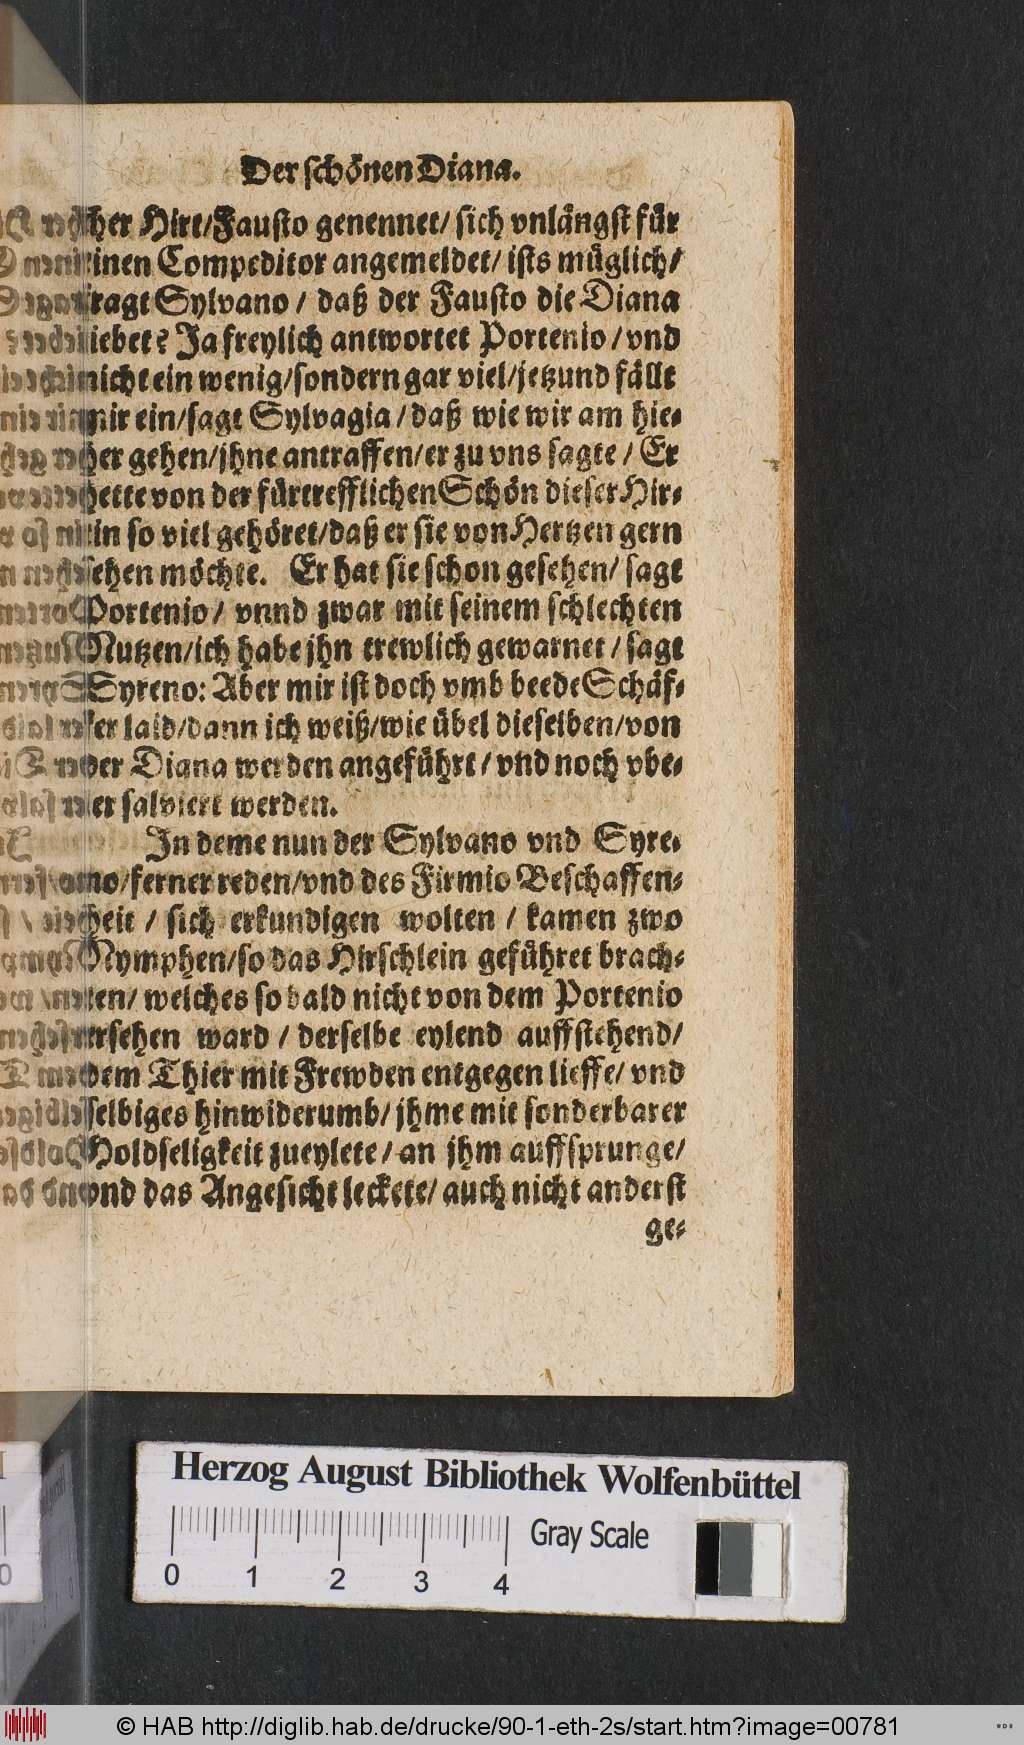 Der schönen Diana.
cher Hirt/Fausto genennet/ sich vnlängst für
einen Competitor angemeldet/ ists müglich/
fragt Sylvano / daß der Fausto die Diana
liebet? Ja freylich antwortet Portenio / vnd
nicht ein wenig/sondern gar viel/jetzund fällt
mir ein/sagt Sylvagia / daß wie wir am hie-
her gehen/jhne antraffen/er zu vns sagte / Er
hette von der fürtrefflichen Schön dieser Hir-
tin so viel gehöret/daß er sie von Hertzen gern
sehen möchte. Er hat sie schon gesehen/ sagt
Portenio/ vnnd zwar mit seinem schlechten
Nutzen/ich habe jhn trewlich gewarnet / sagt
Syreno: Aber mir ist doch vmb beede Schäf-
fer laid/dann ich weiß/wie übel dieselben/von
der Diana werden angeführt / vnd noch vbe-
ler salviert werden.
In deme nun der Sylvano vnd Syre-
no/ferner reden/vnd des Firmio Beschaffen-
heit / sich erkundigen wolten / kamen zwo
Nymphen/so das Hirschlein geführet brach-
ten/ welches so bald nicht von dem Portenio
ersehen ward / derselbe eylend auffstehend/
dem Thier mit Frewden entgegen lieffe/ vnd
selbiges hinwiderumb/ jhme mit sonderbarer
Holdseligkeit zueylete / an jhm auffsprunge/
vnd das Angesicht leckete/ auch nicht anderst
ge-
Herzog August Bibliothek Wolfenbüttel
Gray Scale
0 1 2 3 4
© HAB http://diglib.hab.de/drucke/90-1-eth-2s/start.htm?image=00781